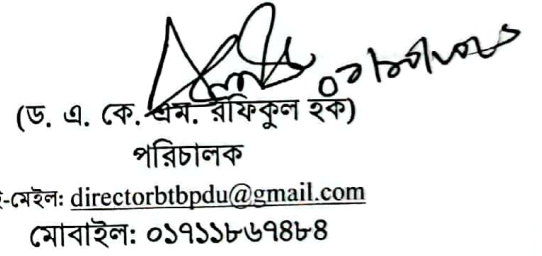 (ড. এ. কে. এম. রফিকুল হক)
পরিচালক
ই-মেইল: directorbtbpdu@gmail.com
মোবাইল: ০১৭১১৮৬৭৪৮৪